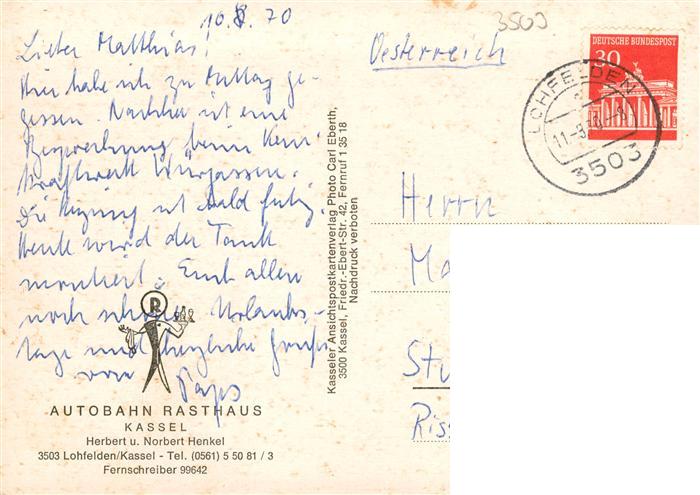 10.8.70
Lieber Matthias!
Hier habe ich zu Mittag ge-
gessen. Nachher ist eine
Besprechung beim Kern-
kraftwerk Würgassen.
Die Heizung ist bald fertig.
Heute wird der Tank
montiert. Euch allen
noch schöne Urlaubs-
tage und herzliche Grüße
von Paps
R
AUTOBAHN RASTHAUS
KASSEL
Herbert u. Norbert Henkel
3503 Lohfelden/Kassel - Tel. (0561) 5 50 81 / 3
Fernschreiber 99642
Kasseler Ansichtspostkartenverlag Photo Carl Eberth,
3500 Kassel, Friedr.-Ebert-Str. 42, Fernruf 1 35 18
Nachdruck verboten
3503
Oesterreich
DEUTSCHE BUNDESPOST
30
LOHFELDEN
3503
Herrn
Ma
Stu
Riss